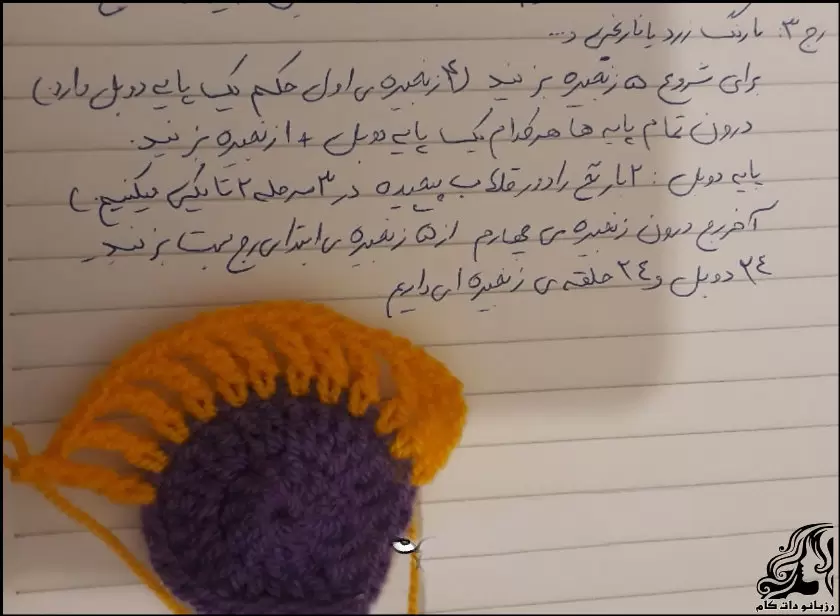 رج ۳: با رنگ زرد یا نارنجی و...
برای شروع ۵ زنجیره بزنید (۴ زنجیره ی اول حکم یک پایه دوبل دارد)
درون تمام پایه ها هر کدام یک پایه دوبل + ۱ زنجیره بزنید.
پایه دوبل: ۲ بار نخ را دور قلاب پیچیده در ۳ مرحله ۲ تا یکی میکنیم.)
آخر رج درون زنجیره ی چهارم از ۵ زنجیره ی ابتدای رج بست بزنید
۲۴ دوبل و ۲۴ حلقه ی زنجیره ای داریم
رزبانو دات کام